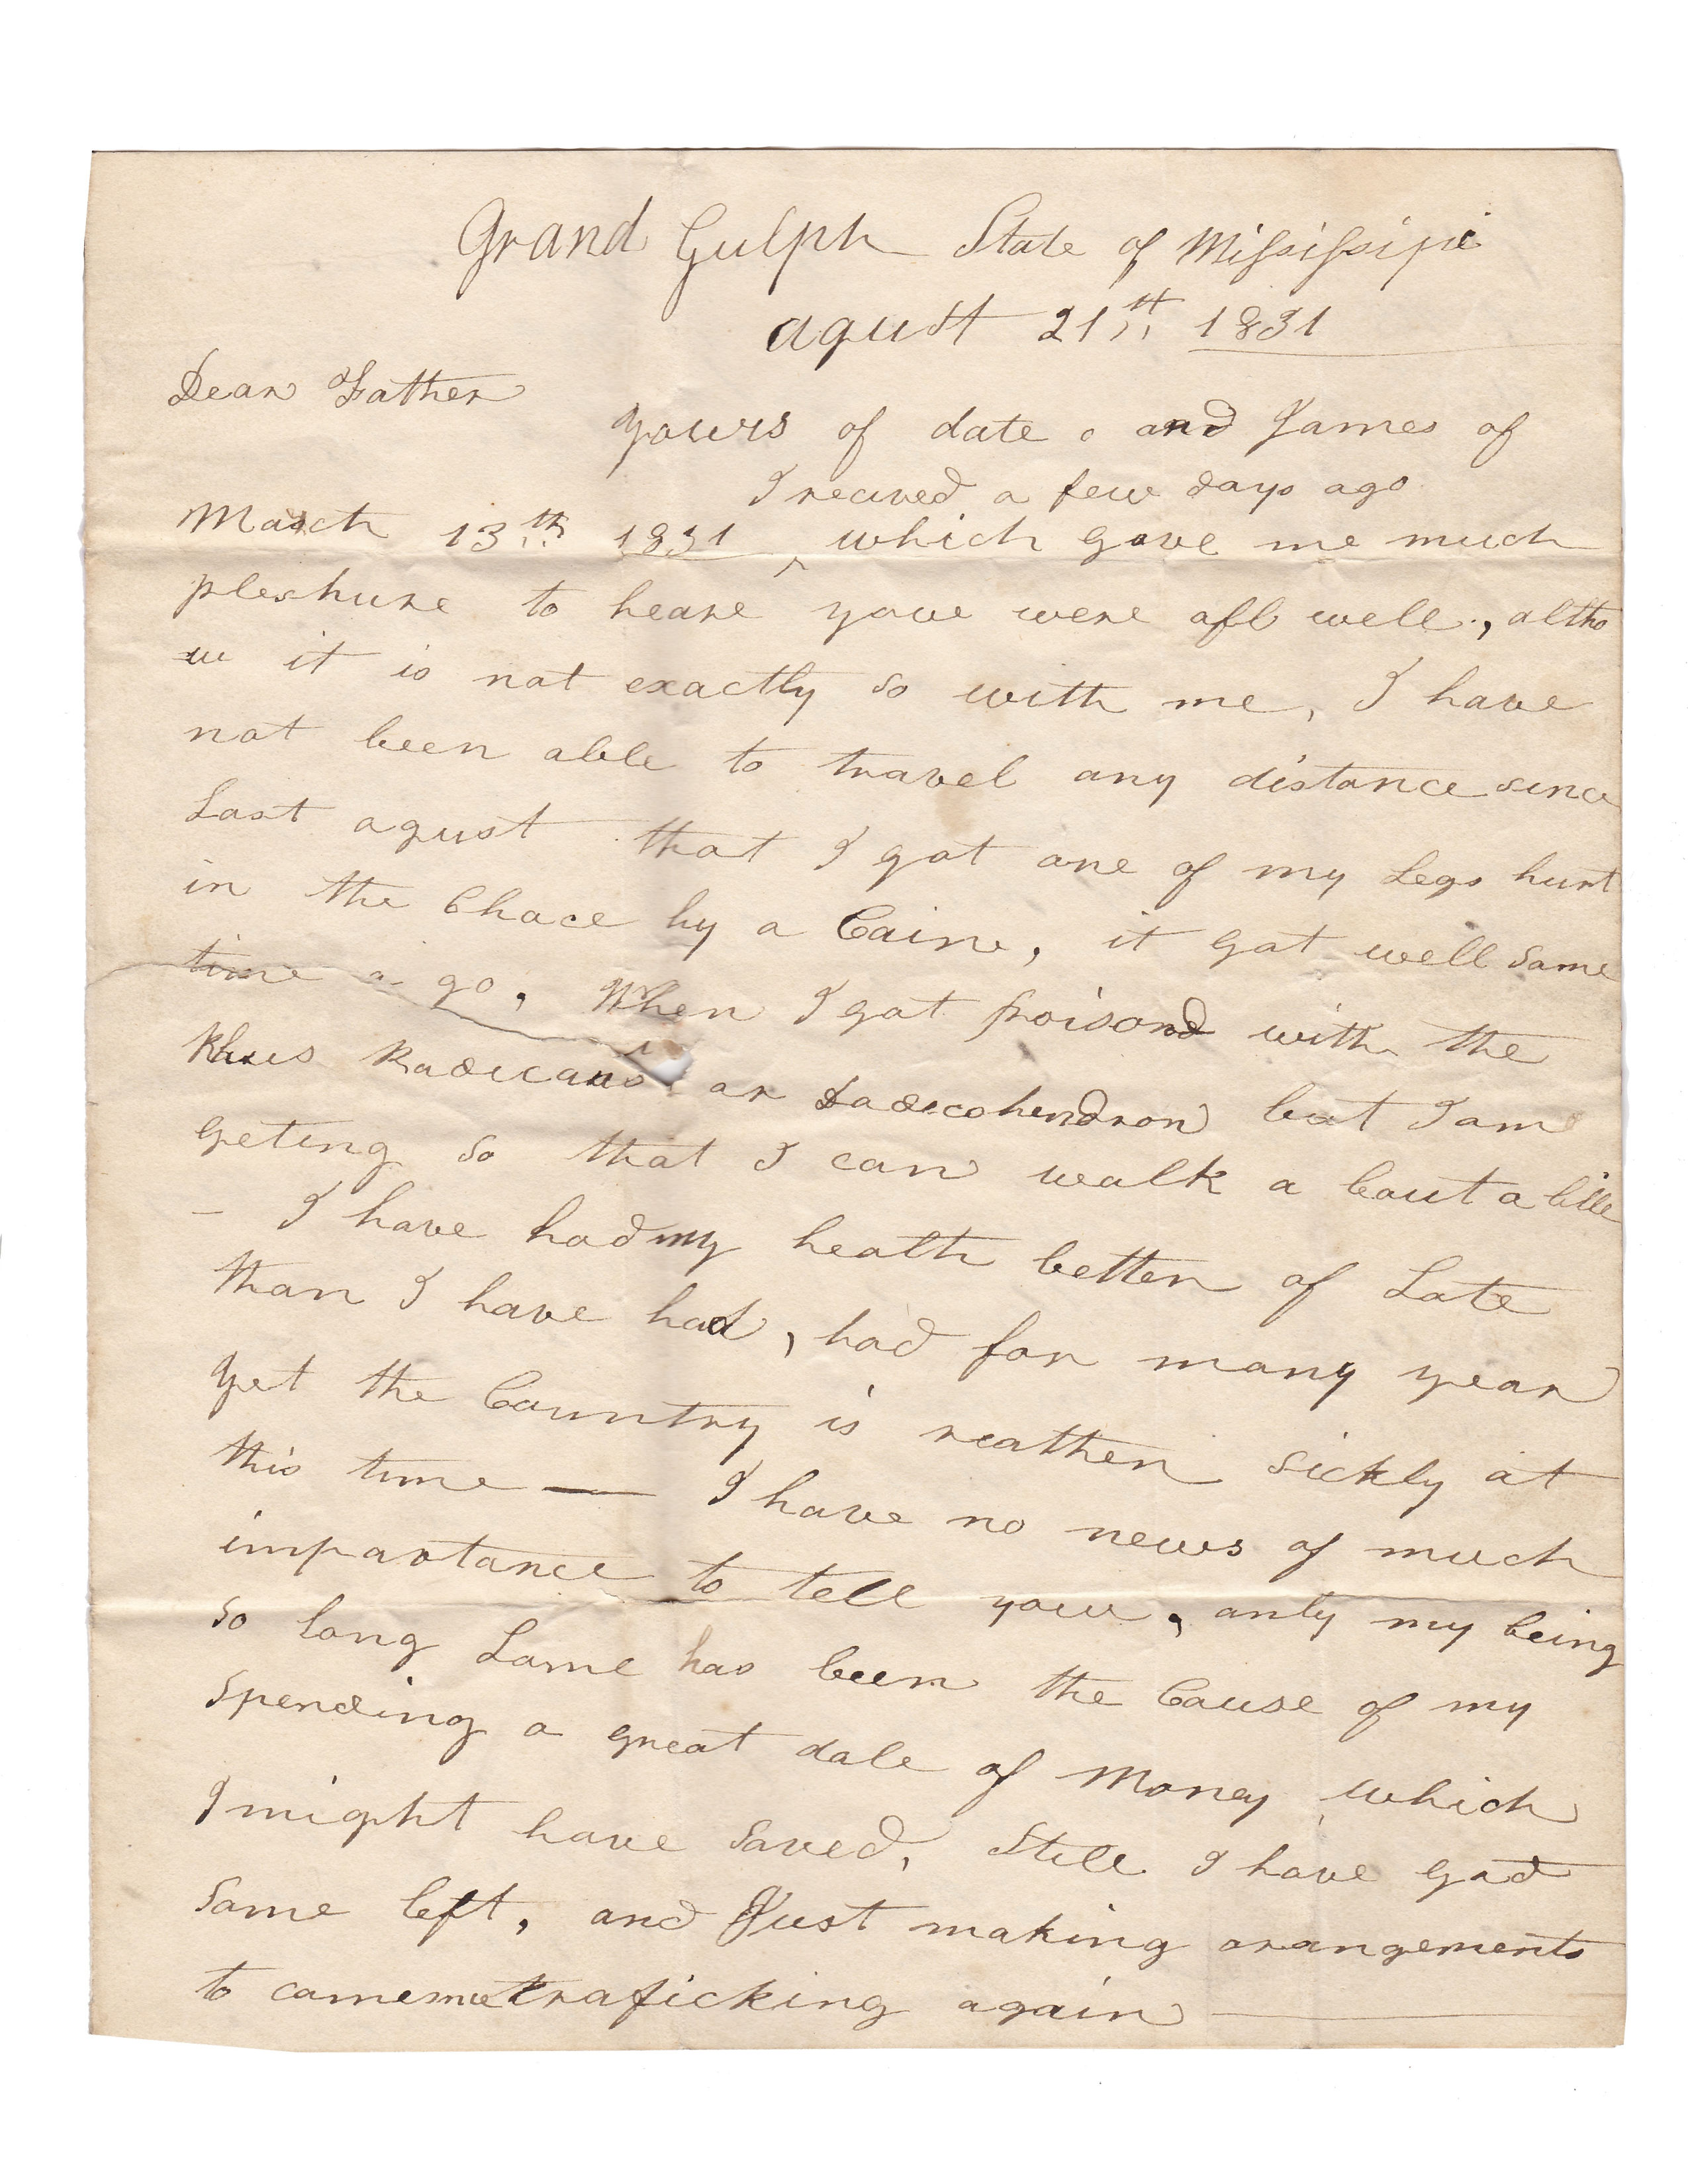 Grand Gulph State of Missisipi
agust 21st 1831
Dear Father
yours of date and James of
I recived a few days ago
March 13th 1831 ^ which gave me much
pleshure to heare youe were all well, altho
u it is not exactly so with me, I have
not been able to travel any distance since
Last agust that I got one of my Legs hurt
in the Chace by a Caine, it got well some
time a go, When I got poisond with the
Rhus Radicans or but I am
geting so that I can walk a bout a little
– I have had my health better of Late
than I have had, had for many year
yet the Country is reather sickly at
this time — I have no news of much
importance to tell youe, only my being
so long Lame has been the Cause of my
spending a great dale of Money which
I might have saved, Still I have god
some left, and Just making arangements
to comence traficking again